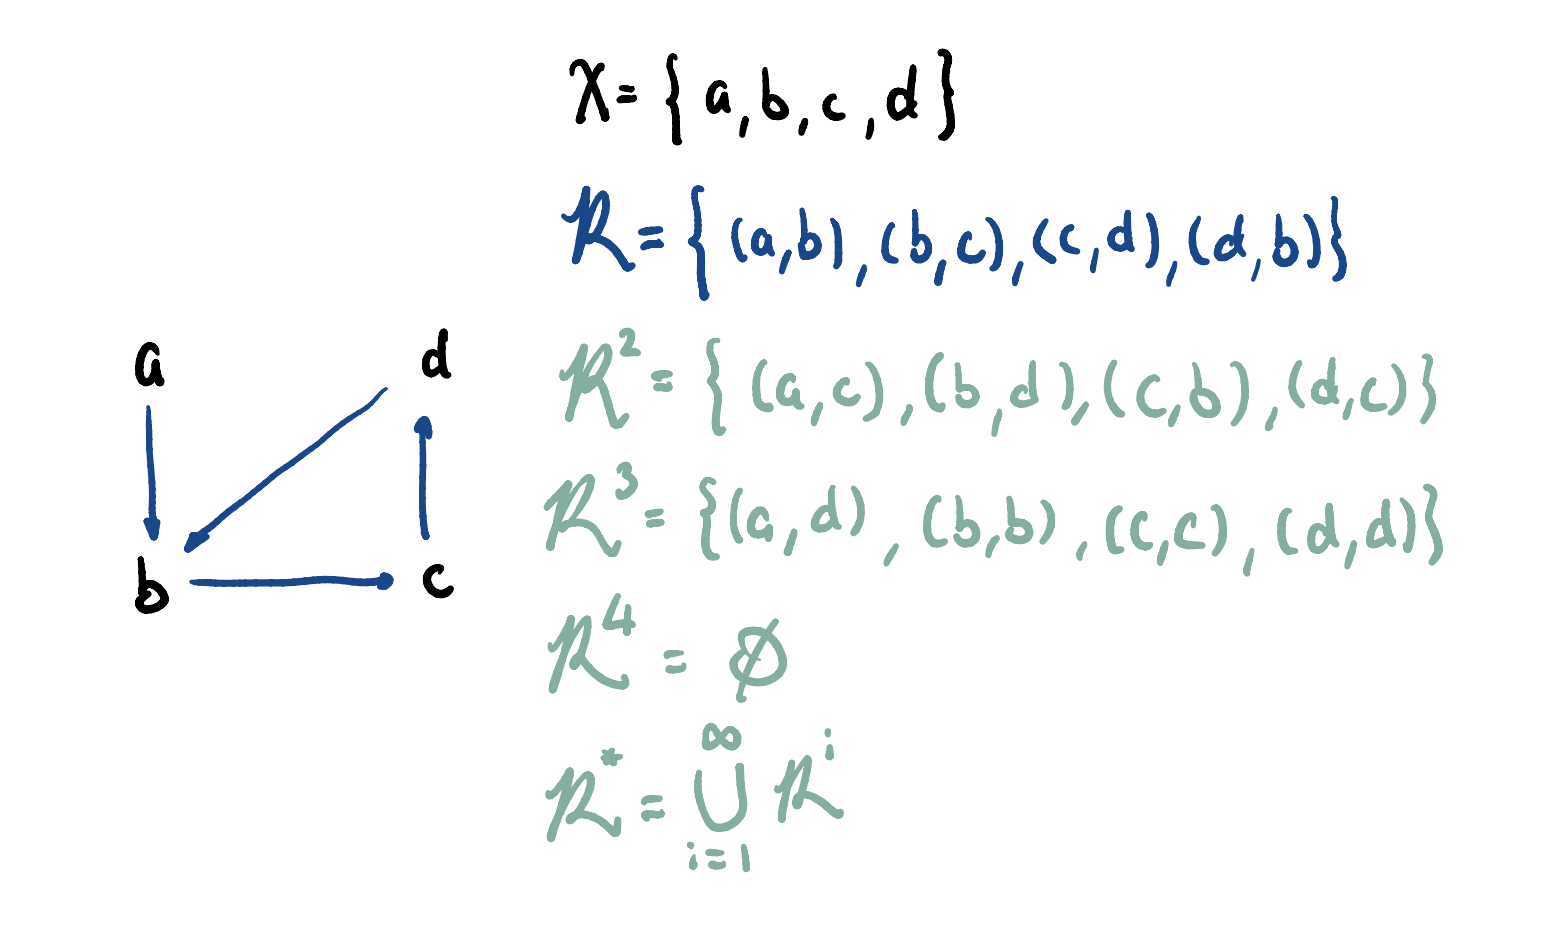 X = { a, b, c, d }
R = { (a,b), (b,c), (c,d), (d,b)}
R² = { (a,c), (b,d), (c,b), (d,c)}
R³ = {(a,d), (b,b), (c,c), (d,d)}
R⁴ = ∅
∞
R* = ∪ Rⁱ
i=1
a d
b c